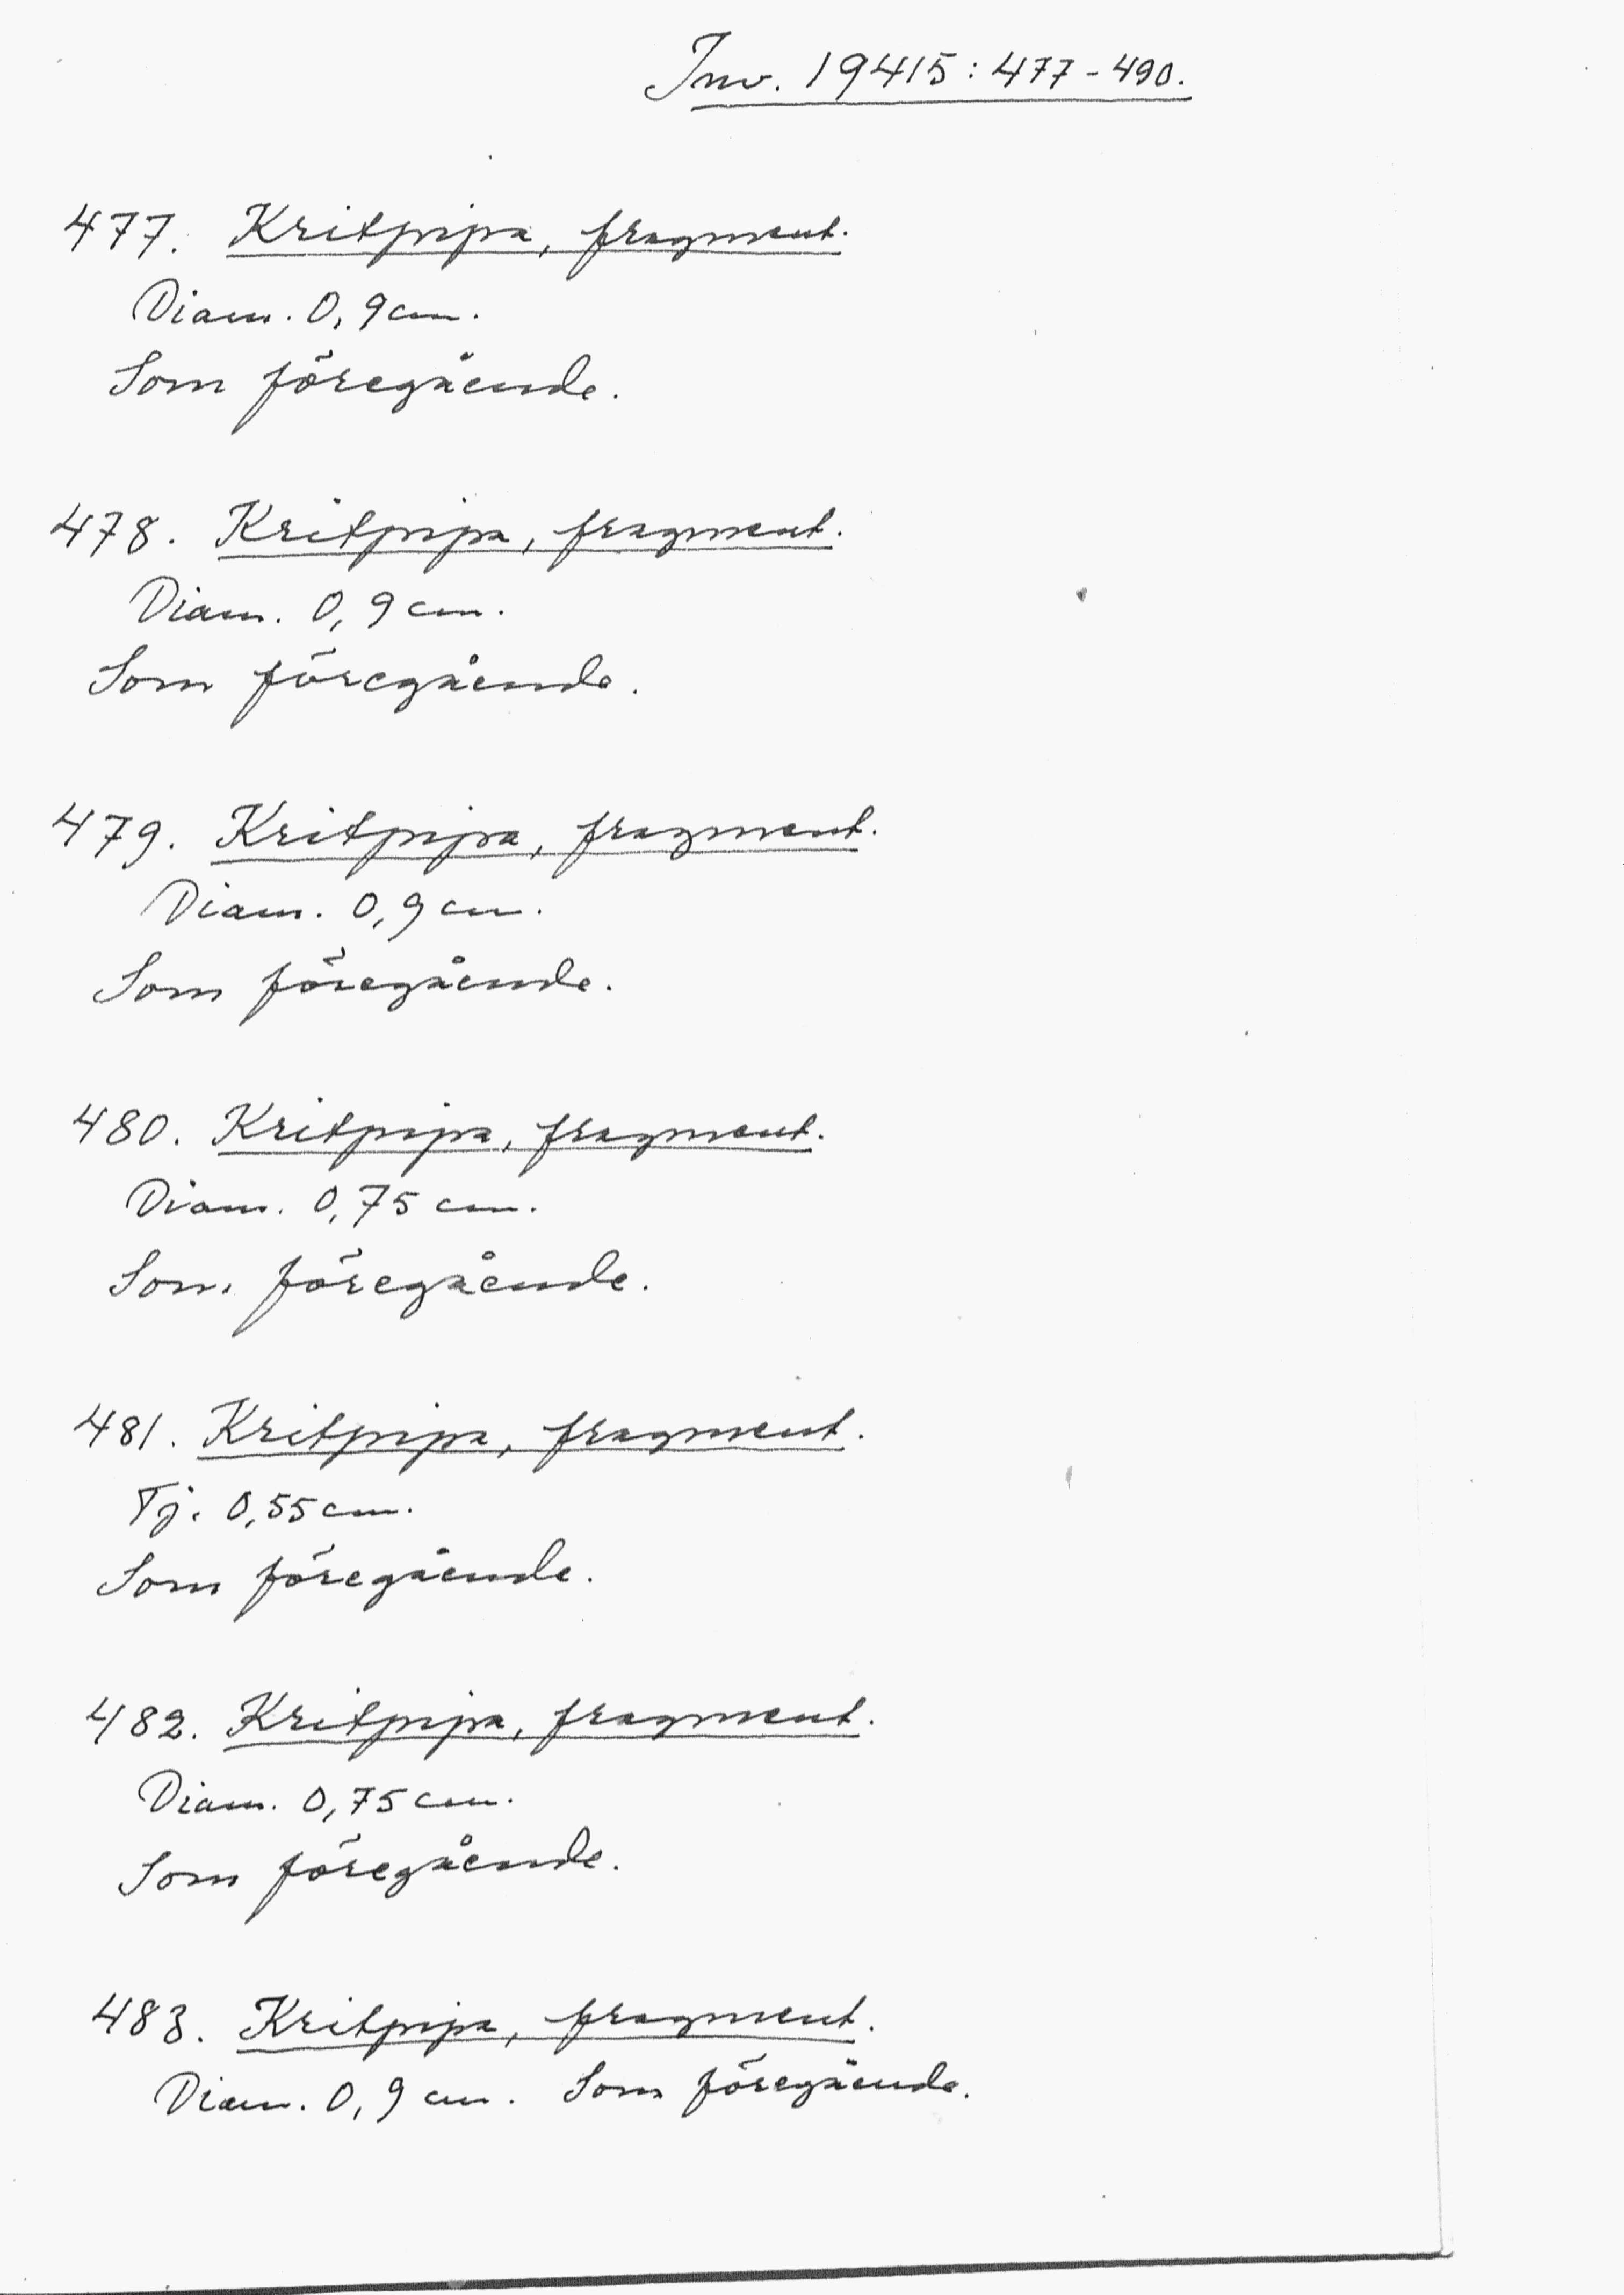 Inv. 19415: 477-490.
477. Kritpipa, fragment.
Diam. 0,9 cm.
Som föregående.
478. Kritpipa, fragment.
Diam. 0,9 cm.
Som föregående.
479. Kritpipa, fragment.
Diam. 0,9 cm.
Som föregående.
480. Kritpipa, fragment.
Diam. 0,75 cm.
Som föregående.
481. Kritpipa, fragment.
Tj. 0,55 cm.
Som föregående.
482. Kritpipa, fragment.
Diam. 0,75 cm.
Som föregående.
483. Kritpipa, fragment.
Diam. 0,9 cm. Som föregående.